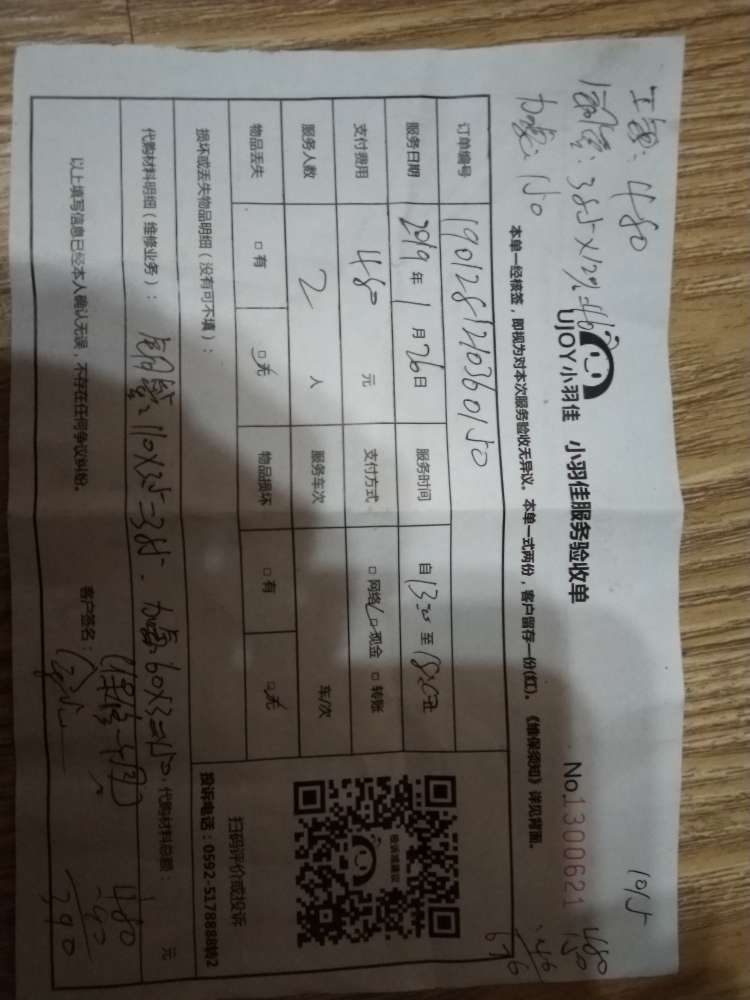 1015
480
150
46
676
480
385×12%=46
150
UJOY小羽佳 小羽佳服务验收单 No.1300621
本单一经核签，即视为对本次服务验收无异议。本单一式两份，客户留存一份(红)。《维保须知》详见背面。
订单编号 1901281210360150
服务日期 2019年1月26日 服务时间 自13:00至18:00止
支付费用 480元 支付方式 □网络 □现金 □转账
服务人数 2人 服务车次 车/次
物品丢失 □有 □无 物品损坏 □有 □无
扫码评价或投诉
投诉电话：0592-5178888转2
损坏或丢失物品明细（没有可不填）：
代购材料明细（维修业务）： 110×3.5=385. 代购材料总额： 元
以上填写信息已经本人确认无误，不存在任何争议纠纷。 客户签名：
480
-90
390